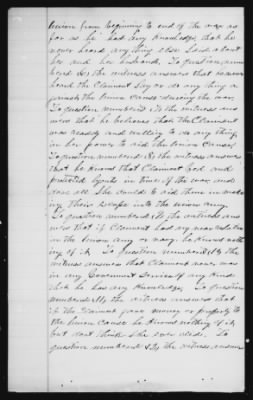 Union from beginning to end of the war as
far as he had any knowledge that he
never heard any thing else said about
her and her husband, To question num
bered the witness answers that he never
heard the Claimant Say or do any thing a
gainst the Union Cause during the war,
To question numbered the witness ans
wers that he believes that the Claimant
was ready and willing to do any thing
in her power to aid the Union Cause,
To question numbered the witness answers
that he knows that Claimant fed and
protected in time of the war and
gave all She could to aid them in mak
ing their escape into the union army
To question numbered the witness ans
wers that if Claimant had any near relation
in the Union Army or navy he knows noth
ing of it, To question numbered the
witness answers that Claimant never was
in any Government Service of any kind
that he has any knowledge, To question
numbered the witness answers that
if the Claimant gave money or property to
the Union Cause he knows nothing of it
but dont think she ever did. To
question numbered the witness answers